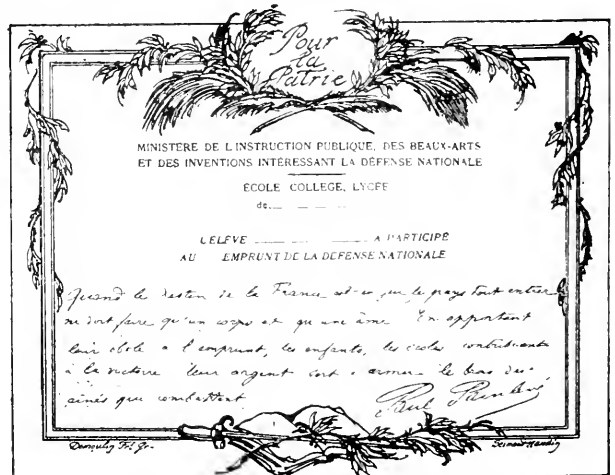 Pour
la
Patrie
MINISTÈRE DE L'INSTRUCTION PUBLIQUE, DES BEAUX-ARTS
ET DES INVENTIONS INTÉRESSANT LA DÉFENSE NATIONALE
ÉCOLE COLLEGE, LYCÉE
de
L'ÉLÈVE A PARTICIPÉ
AU EMPRUNT DE LA DÉFENSE NATIONALE
Quand le destin de la France est en jeu le pays tout entier
ne doit faire qu'un corps et qu'une âme En apportant
leur obole à l'emprunt, les enfants, les écoles contribuent
à la victoire leur argent sert à armer le bras des
ainés qui combattent
Paul Painlevé